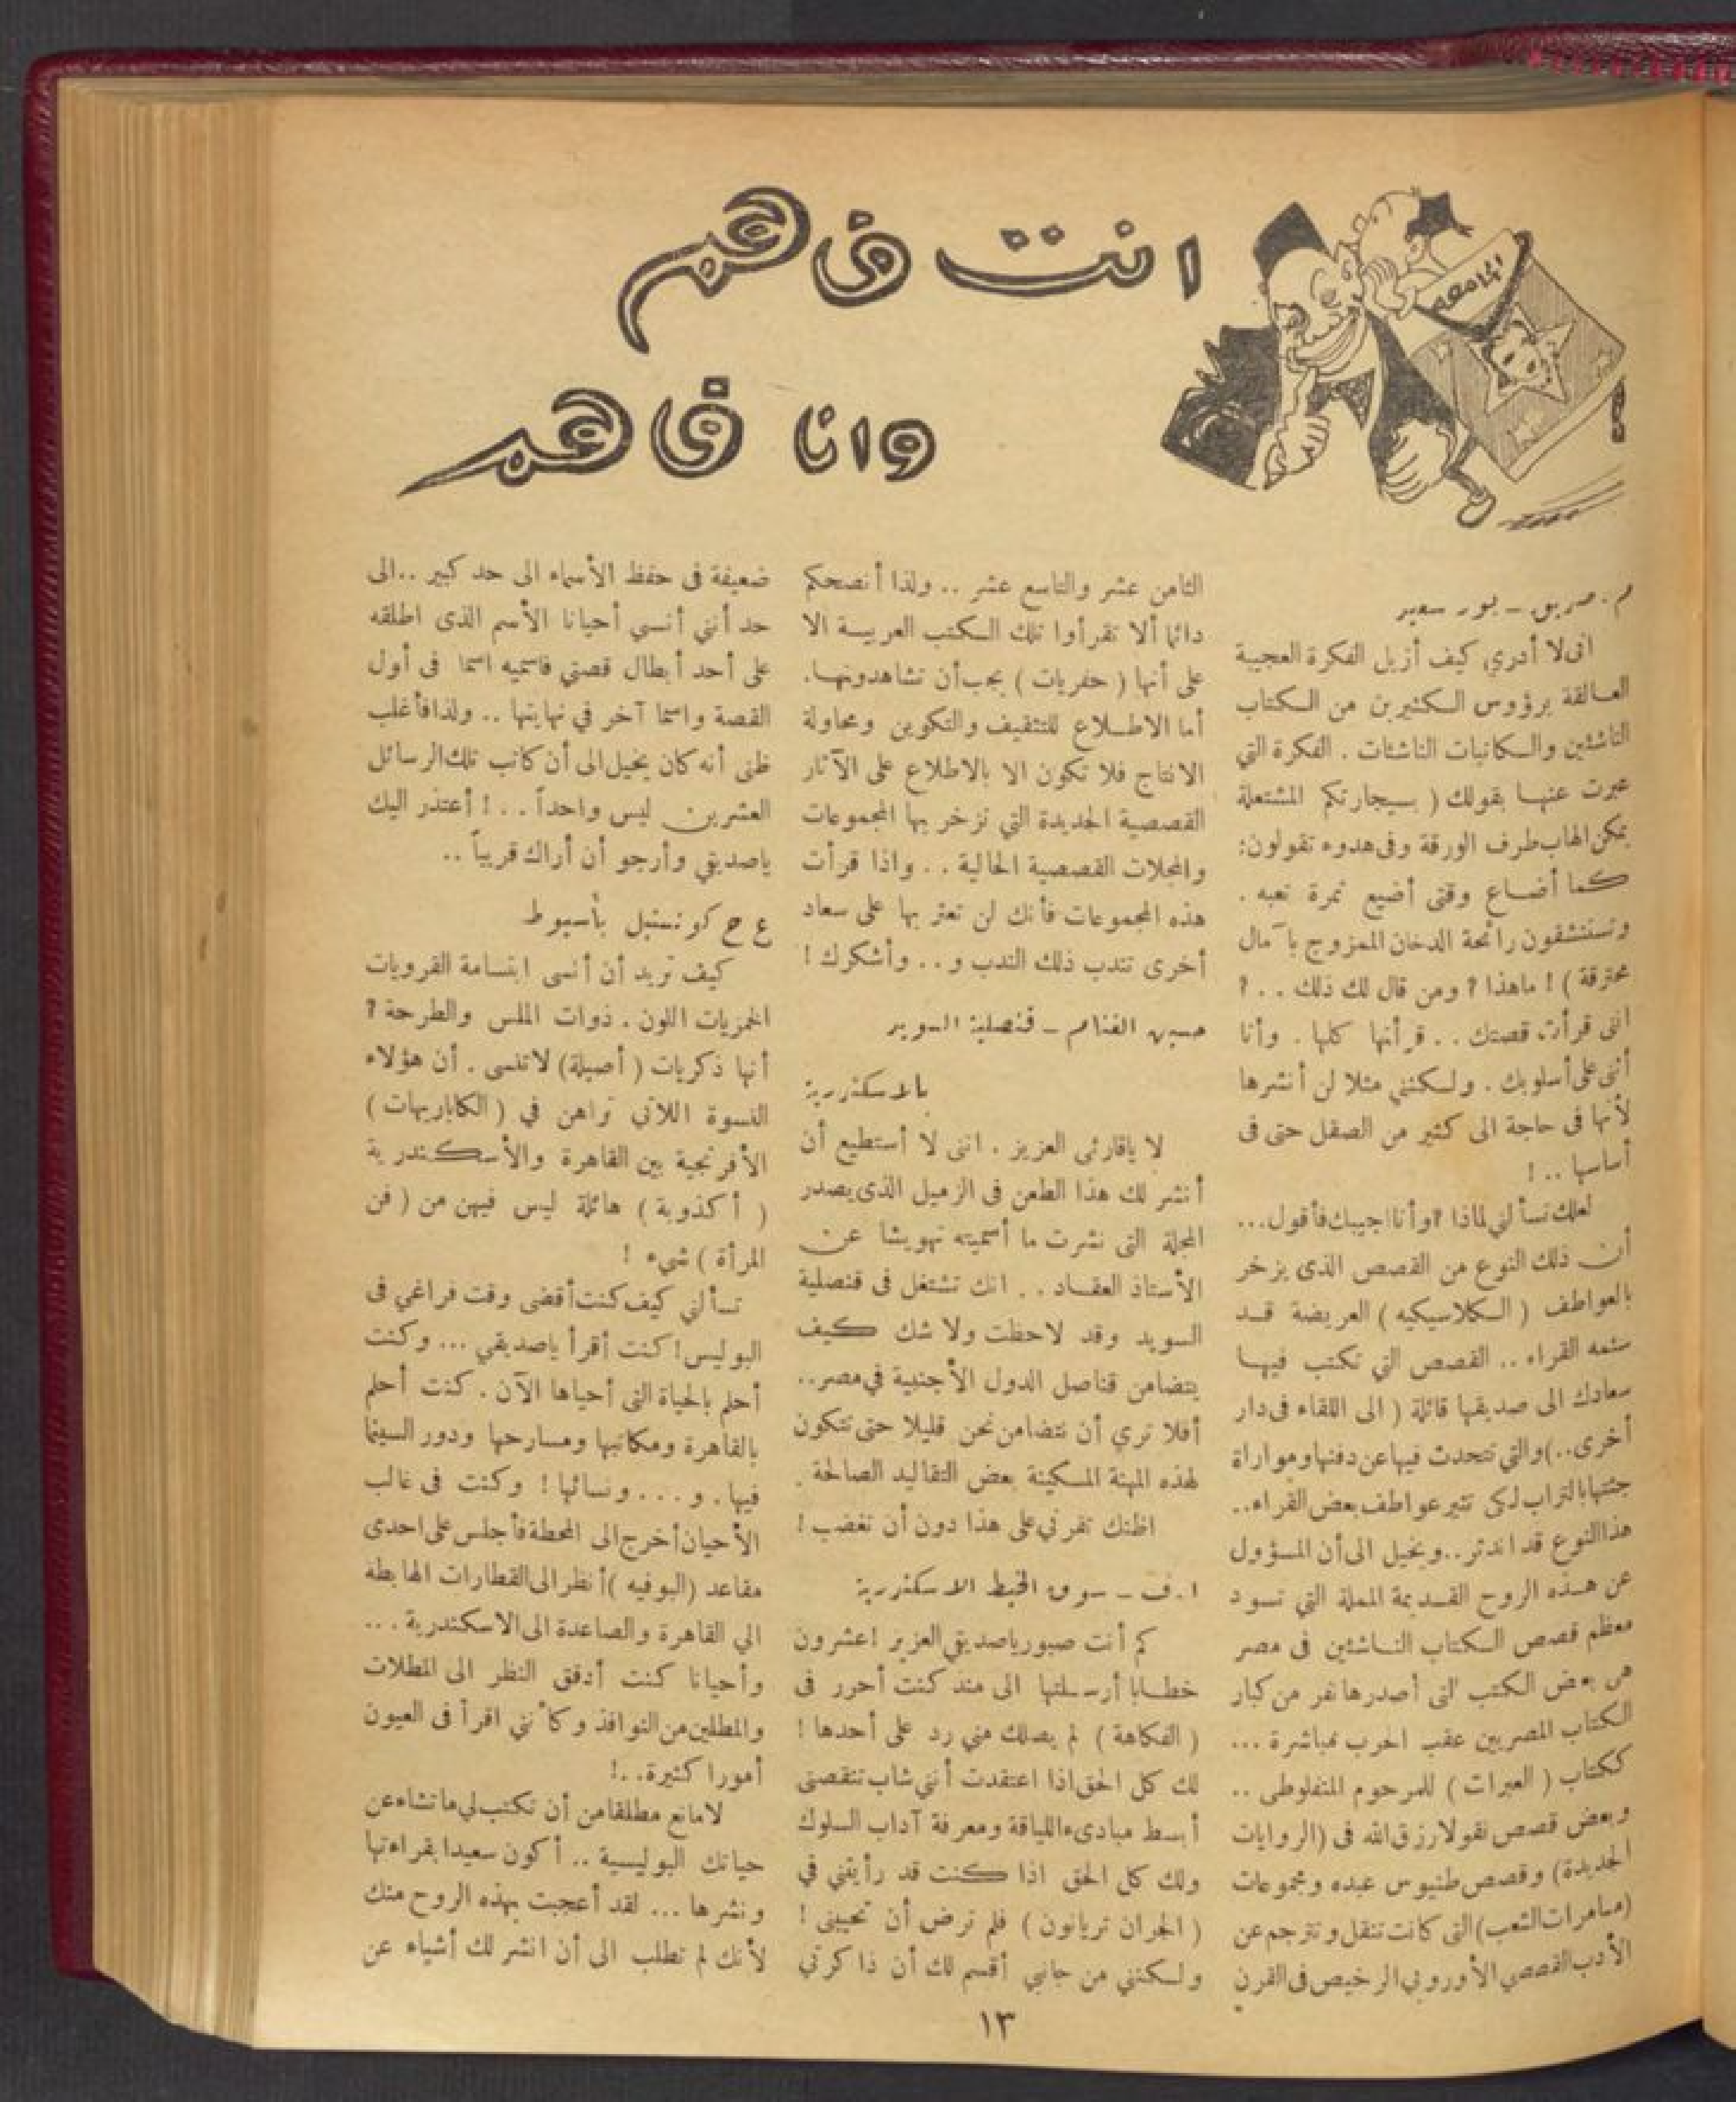 انت فاهم
وانا فاهم
الجامعة
م. صديق - بور سعيد
انى لا أدري كيف أزيل الفكرة العجيبة
العالقة برؤوس الكثيرين من الكتاب
الناشئين والكاتبات الناشئات . الفكرة التي
عبرت عنها بقولك ( بسيجارتكم المشتعلة
يمكن الهاب طرف الورقة وفى هدوء تقولون:
كما أضاع وقتى أضيع ثمرة تعبه .
وتستنشقون رائحة الدخان الممزوج بآمال
محترقة ) ! ماهذا ? ومن قال لك ذلك . . ?
اننى قرأت قصتك . . قرأتها كلها . وأنا
أثنى على أسلوبك . ولكننى مثلا لن أنشرها
لأنها فى حاجة الى كثير من الصقل حتى فى
أساسها .. !
لعلك تسألني لماذا ? وأنا اجيبك فأقول...
أن ذلك النوع من القصص الذى يزخر
بالعواطف ( الكلاسيكيه ) العريضة قد
سئمه القراء .. القصص التي تكتب فيها
سعادك الى صديقها قائلة ( الى اللقاء فى دار
أخرى..) والتي تتحدث فيها عن دفنها ومواراة
جثتها بالتراب لكى تثير عواطف بعض القراء..
هذا النوع قد اندثر.. ويخيل الى أن المسؤول
عن هذه الروح القديمة المملة التي تسود
معظم قصص الكتاب الناشئين فى مصر
هى بعض الكتب التى أصدرها نفر من كبار
الكتاب المصريين عقب الحرب مباشرة ...
ككتاب ( العبرات ) للمرحوم المنفلوطى ..
وبعض قصص نقولا رزق الله فى (الروايات
الجديدة) وقصص طنيوس عبده ومجموعات
(مسامرات الشعب) التى كانت تنقل وتترجم عن
الأدب القصصي الأوروبي الرخيص فى القرن
الثامن عشر والتاسع عشر .. ولذا أنصحكم
دائما ألا تقرأوا تلك الكتب العربية الا
على أنها ( حفريات ) يجب أن تشاهدونها.
أما الاطلاع للتثقيف والتكوين ومحاولة
الانتاج فلا تكون الا بالاطلاع على الآثار
القصصية الجديدة التي تزخر بها المجموعات
والمجلات القصصية الحالية . . واذا قرأت
هذه المجموعات فأنك لن تعثر بها على سعاد
أخرى تندب ذلك الندب و . . وأشكرك !
حسين الغنام - قنصلية السويد
بالاسكندرية
لا ياقارئى العزيز . اننى لا أستطيع أن
أنشر لك هذا الطعن فى الزميل الذى يصدر
المجلة التى نشرت ما أسميته تهويشا عن
الأستاذ العقاد . . انك تشتغل فى قنصلية
السويد وقد لاحظت ولا شك كيف
يتضامن قناصل الدول الأجنبية في مصر..
أفلا تري أن نتضامن نحن قليلا حتى تتكون
لهذه المهنة المسكينة بعض التقاليد الصالحة .
اظنك تقرني على هذا دون أن تغضب !
ا . ف - سوق الخيط الاسكندرية
كم أنت صبور ياصديقي العزيز ! عشرون
خطابا أرسلتها الى منذ كنت أحرر فى
( الفكاهة ) لم يصلك مني رد على أحدها !
لك كل الحق اذا اعتقدت أننى شاب تنقصنى
أبسط مبادىء اللياقة ومعرفة آداب السلوك
ولك كل الحق اذا كنت قد رأيتني في
( الجران تريانون ) فلم ترض أن تحيينى !
ولكننى من جانبي أقسم لك أن ذاكرتي
ضعيفة فى حفظ الأسماء الى حد كبير .. الى
حد أنني أنسي أحيانا الأسم الذى اطلقه
على أحد أبطال قصتي فاسميه اسما فى أول
القصة واسما آخر في نهايتها .. ولذا فأغلب
ظنى أنه كان يخيل الى أن كاتب تلك الرسائل
العشرين ليس واحداً . . ! أعتذر اليك
ياصديقي وأرجو أن أراك قريباً ..
ع ح كونستبل بأسيوط
كيف تريد أن أنسى ابتسامة القرويات
الخمزيات اللون . ذوات الملس والطرحة ?
أنها ذكريات ( أصيلة) لاتنسى . أن هؤلاء
النسوة اللاتي تراهن في ( الكاباريهات )
الأفرنجية بين القاهرة والأسكندرية
( أكذوبة ) هائلة ليس فيهن من ( فن
المرأة ) شيء !
تسألني كيف كنت أقضى وقت فراغي فى
البوليس ! كنت أقرأ ياصديقي ... وكنت
أحلم بالحياة التى أحياها الآن . كنت أحلم
بالقاهرة ومكاتبها ومسارحها ودور السينما
فيها . و . . . ونسائها ! وكنت فى غالب
الأحيان أخرج الى المحطة فأجلس على احدى
مقاعد (البوفيه) أنظر الى القطارات الهابطة
الي القاهرة والصاعدة الى الاسكندرية ...
وأحيانا كنت أدقق النظر الى المطلات
والمطلين من النوافذ وكأنني اقرأ فى العيون
أمورا كثيرة..!
لا مانع مطلقا من أن تكتب لي ما تشاء عن
حياتك البوليسية .. أكون سعيدا بقراءتها
ونشرها ... لقد أعجبت بهذه الروح منك
لأنك لم تطلب الى أن انشر لك أشياء عن
١٣